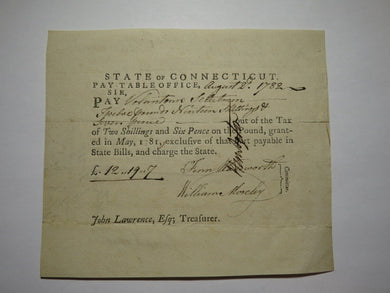 STATE OF CONNECTICUT.
PAY TABLE OFFICE, August 2d. 1782
SIR,
PAY Voluntown Selectmen
Twelve pounds Nineteen Shillings &
Seven pence out of the Tax
of Two Shillings and Six Pence on the Pound, grant-
ed in May, 1781, exclusive of that Part payable in
State Bills, and charge the State.
£ 12-19-7
Fenn Wadsworth
William Moseley
Committee.
John Lawrence, Esq; Treasurer.